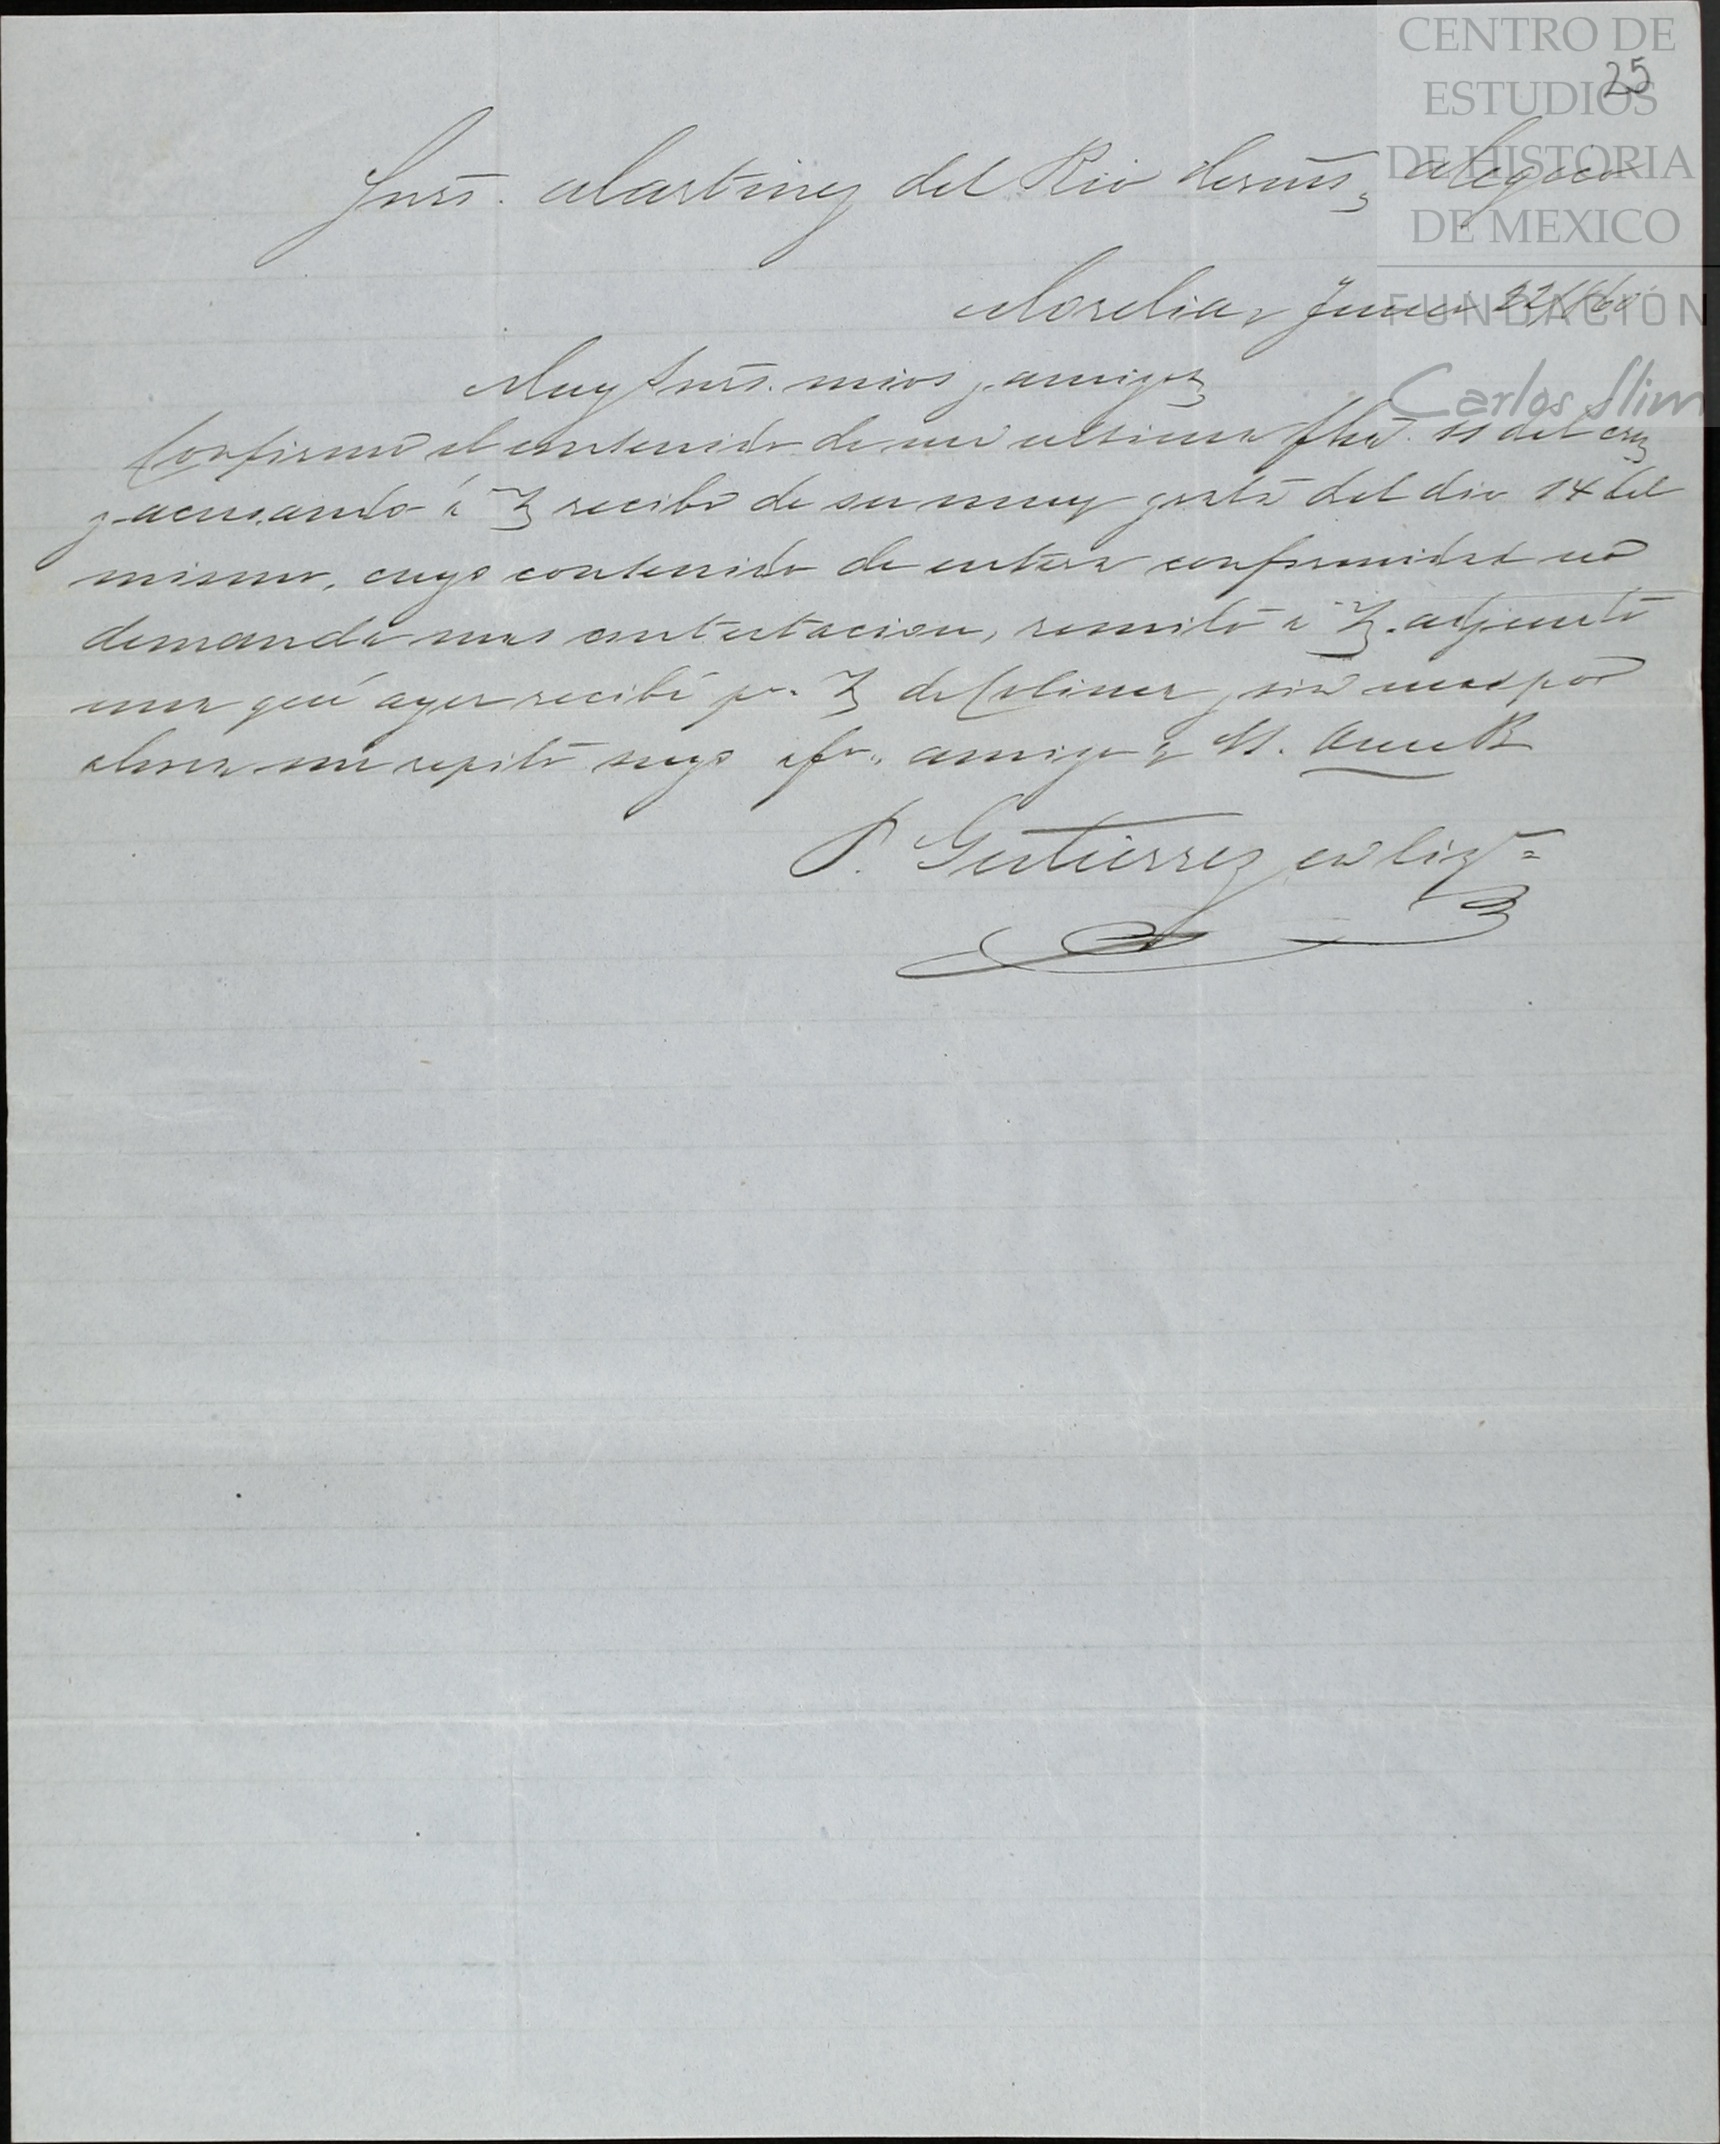 CENTRO DE
ESTUDIOS
25
DE HISTORIA
DE MEXICO
FUNDACIÓN
Carlos Slim
Snrs. Martinez del Rio herms, Megico
Morelia, Junio 22/860
Muy Snrs. mios y amigos
Confirmo el contenido de mi ultima fha. 11 del
y acusando á V recibo de su muy grata del dia 14 del
mismo, cuyo contenido de entera conformidad no
demanda mas contestacion, remito á V. adjunto
una que ayer recibí pa. V de Colima y sin mas por
ahora me repito suyo afmo. amigo y
P. Gutierrez en liqn